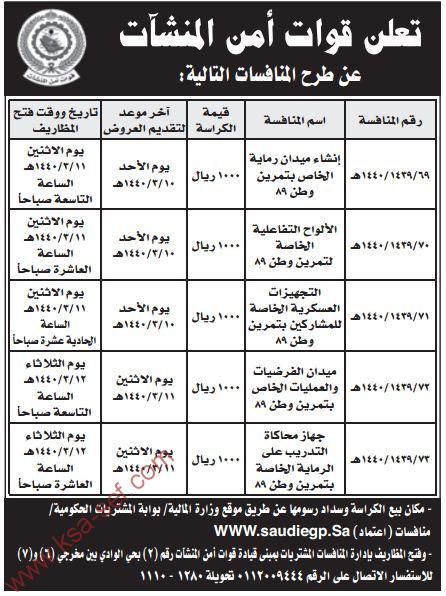 تعلن قوات أمن المنشآت
عن طرح المنافسات التالية:
قوات أمن المنشآت
رقم المنافسة
اسم المنافسة
قيمة
الكراسة
آخر موعد
لتقديم العروض
تاريخ ووقت فتح
المظاريف
١٤٤٠/١٤٣٩/٦٩هـ
إنشاء ميدان رماية
الخاص بتمرين
وطن ٨٩
١٠٠٠ ريال
يوم الأحد
١٤٤٠/٣/١٠هـ
يوم الاثنين
١٤٤٠/٣/١١هـ
الساعة
التاسعة صباحاً
١٤٤٠/١٤٣٩/٧٠هـ
الألواح التفاعلية
الخاصة
لتمرين وطن ٨٩
١٠٠٠ ريال
يوم الأحد
١٤٤٠/٣/١٠هـ
يوم الاثنين
١٤٤٠/٣/١١هـ
الساعة
العاشرة صباحاً
١٤٤٠/١٤٣٩/٧١هـ
التجهيزات
العسكرية الخاصة
للمشاركين بتمرين
وطن ٨٩
١٠٠٠ ريال
يوم الأحد
١٤٤٠/٣/١٠هـ
يوم الاثنين
١٤٤٠/٣/١١هـ
الساعة
الحادية عشرة صباحاً
١٤٤٠/١٤٣٩/٧٢هـ
ميدان الفرضيات
والعمليات الخاص
بتمرين وطن ٨٩
١٠٠٠ ريال
يوم الاثنين
١٤٤٠/٣/١١هـ
يوم الثلاثاء
١٤٤٠/٣/١٢هـ
الساعة
التاسعة صباحاً
١٤٤٠/١٤٣٩/٧٣هـ
جهاز محاكاة
التدريب على
الرماية الخاصة
بتمرين وطن ٨٩
١٠٠٠ ريال
يوم الاثنين
١٤٤٠/٣/١١هـ
يوم الثلاثاء
١٤٤٠/٣/١٢هـ
الساعة
العاشرة صباحاً
- مكان بيع الكراسة وسداد رسومها عن طريق موقع وزارة المالية/ بوابة المشتريات الحكومية/
منافسات (اعتماد) WWW.saudiegp.Sa
- وفتح المظاريف بإدارة المنافسات المشتريات بمبنى قيادة قوات أمن المنشآت رقم (٢) بحي الوادي بين مخرجي (٦) و(٧)
للاستفسار الاتصال على الرقم ٠١١٢٠٠٩٤٤٤ تحويلة ١٢٨٠ - ١١١٠